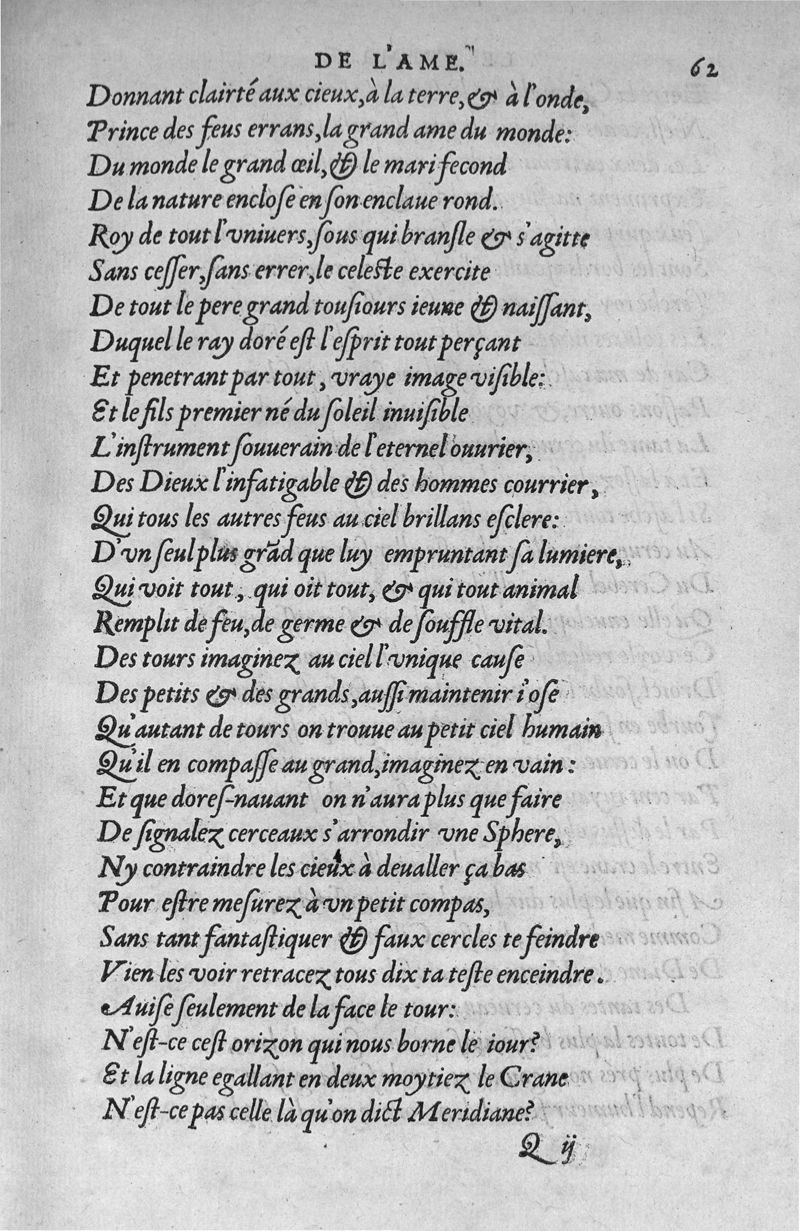 DE L'AME. 62
Donnant clairté aux cieux, à la terre, & à l'onde,
Prince des feus errans, la grand ame du monde:
Du monde le grand œil, & le mari fecond
De la nature enclose en son enclaue rond.
Roy de tout l'vniuers, sous qui bransle & s'agitte
Sans cesser, sans errer, le celeste exercite
De tout le pere grand tousiours ieune & naissant,
Duquel le ray doré est l'esprit tout perçant
Et penetrant par tout, vraye image visible:
Et le fils premier né du soleil inuisible
L'instrument souuerain de l'eternel ouurier,
Des Dieux l'infatigable & des hommes courrier,
Qui tous les autres feus au ciel brillans esclere:
D'vn seul plus grãd que luy empruntant sa lumiere,
Qui voit tout, qui oit tout, & qui tout animal
Remplit de feu, de germe & de souffle vital.
Des tours imaginez au ciel l'vnique cause
Des petits & des grands, aussi maintenir i'ose
Qu'autant de tours on trouue au petit ciel humain
Qu'il en compasse au grand, imaginez en vain:
Et que dores-nauant on n'aura plus que faire
De signalez cerceaux s'arrondir vne Sphere,
Ny contraindre les cieux à deualler ça bas
Pour estre mesurez à vn petit compas,
Sans tant fantastiquer & faux cercles te feindre
Vien les voir retracez tous dix ta teste enceindre.
Auise seulement de la face le tour:
N'est-ce cest orizon qui nous borne le iour?
Et la ligne egallant en deux moytiez le Crane
N'est-ce pas celle là qu'on dict Meridiane?
Q ij